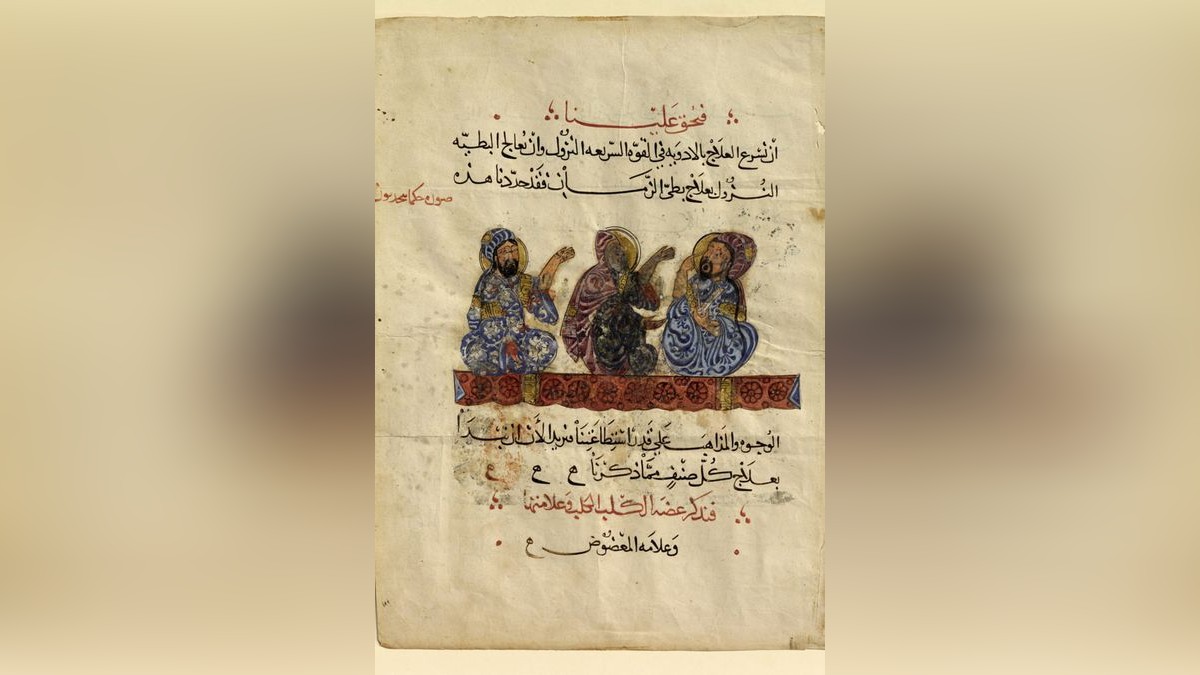 فيحق علينا
ان نسرع العلاج بالادويه في القوه السريعه النزول وان نعالج البطيه
النزول بعلاج بطي الزمان فقد حددنا هذه
صوره حكما
الوجوه والمذاهب علي قدر استطاعتنا فنريد الأن ان نبدأ
بعلاج كُلّ صنفٍ ممّا ذكرنا
فنذكر عضه الكلب الكلب وعلامتها
وعلامه المعضوض